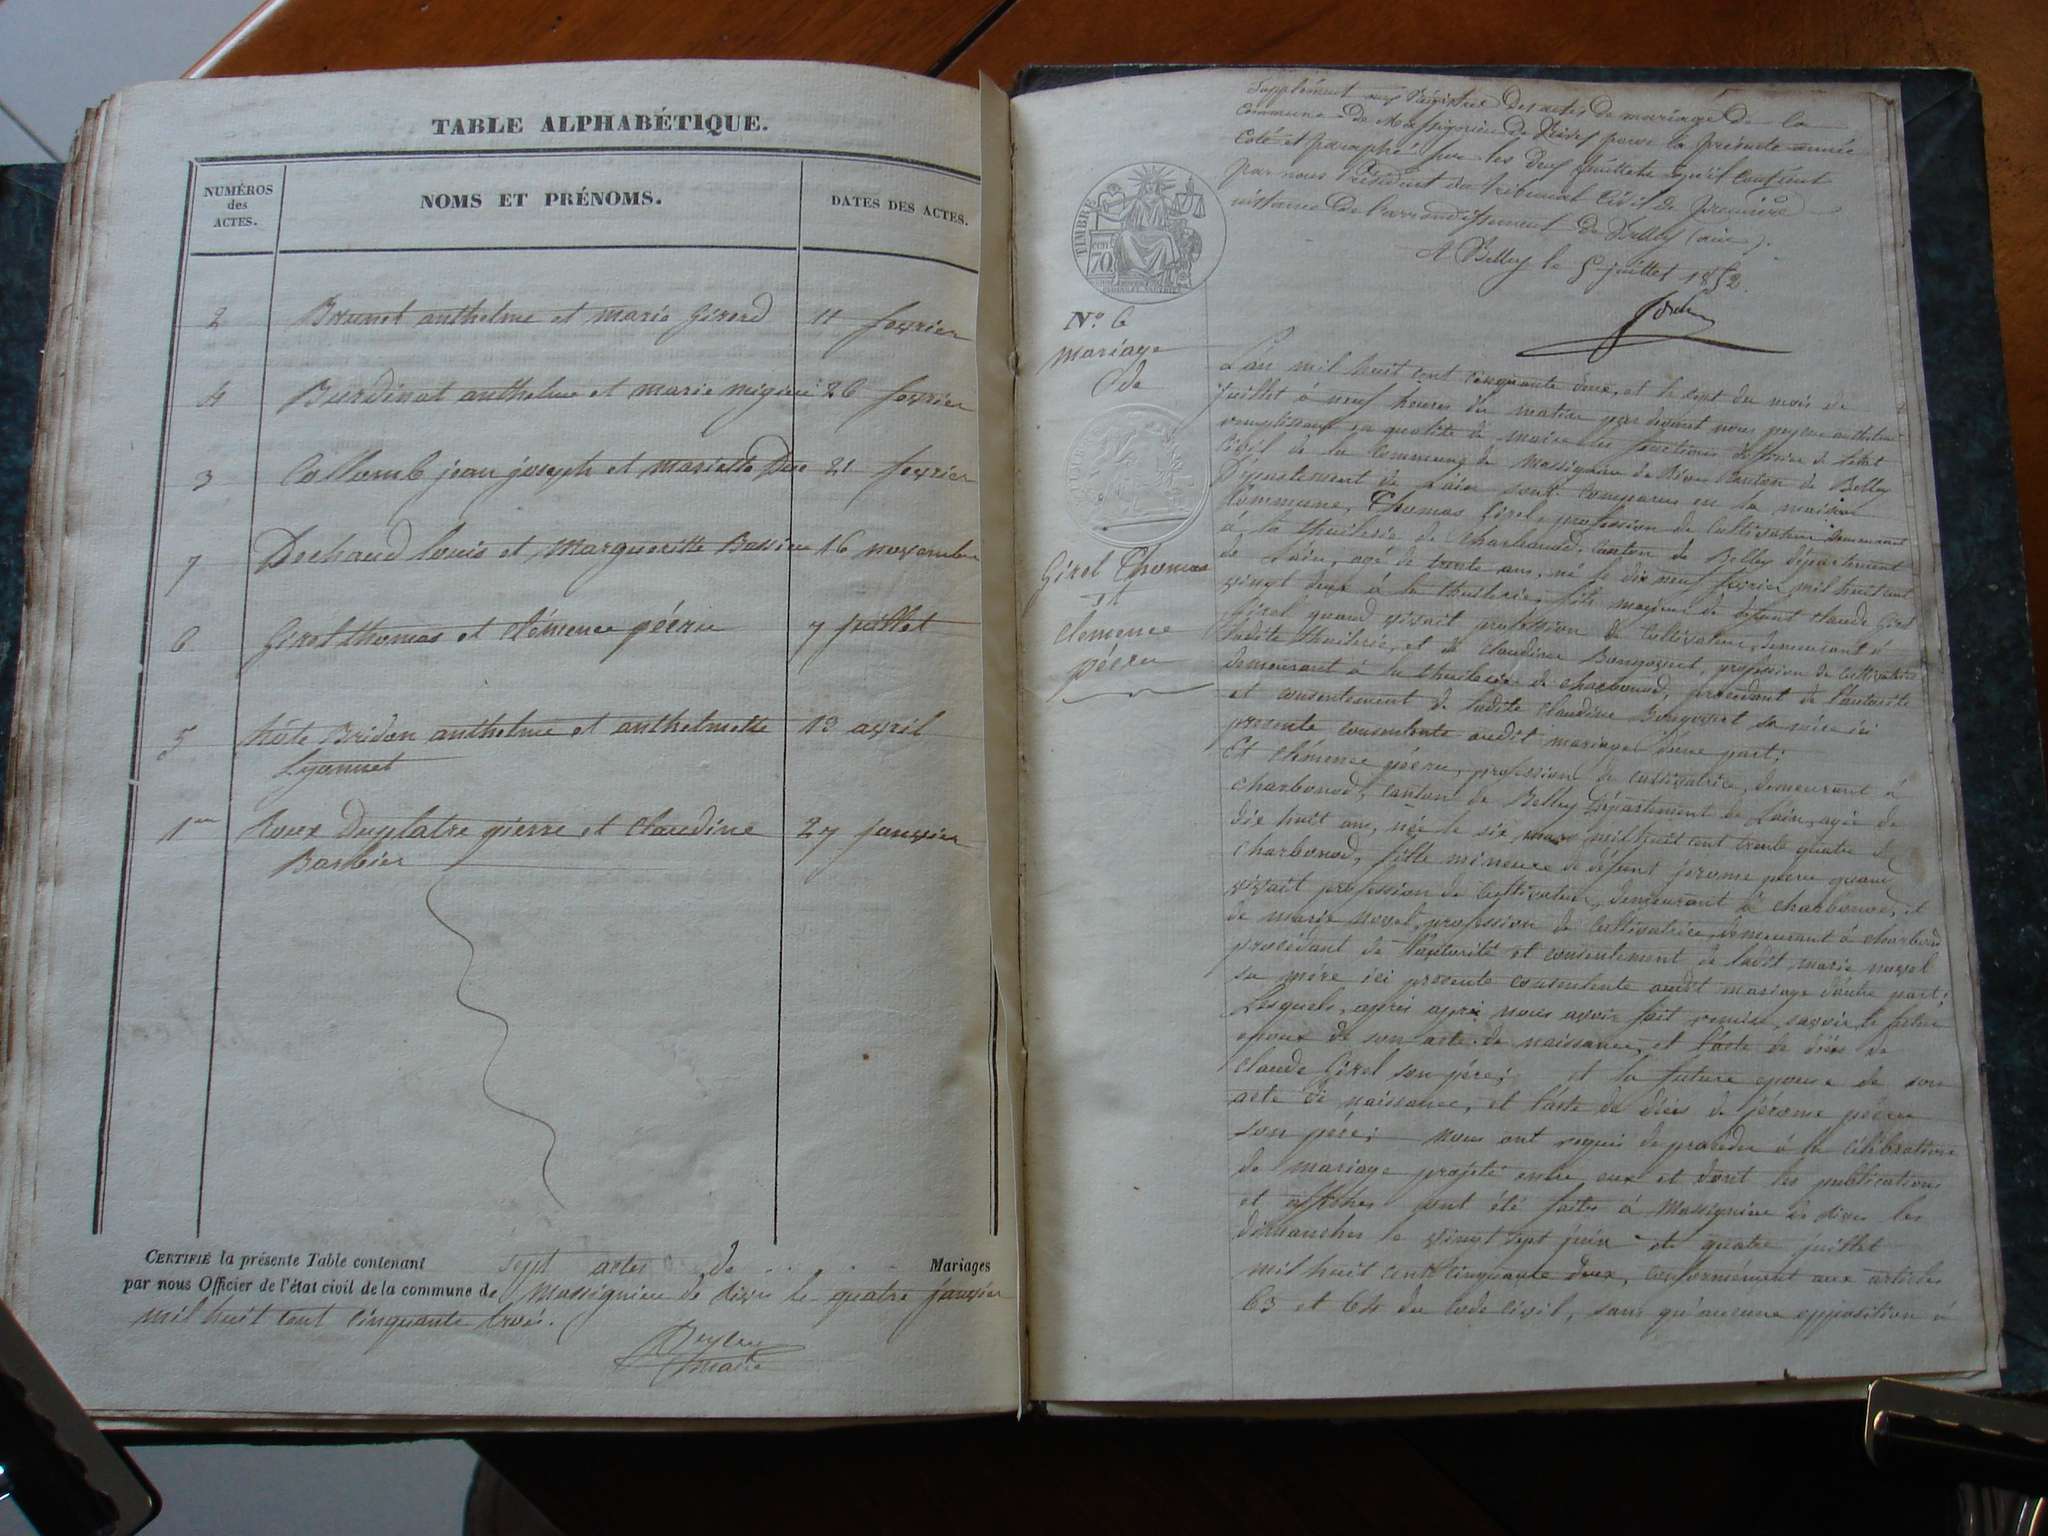 TABLE ALPHABÉTIQUE.
NUMÉROS des ACTES.
NOMS ET PRÉNOMS.
DATES DES ACTES.
2 Brunet anthelme et marie Girerd 11 fevrier
4 Burdinat anthelme et marie migieu 26 fevrier
3 Collomb jean joseph et mariette Duc 21 fevrier
7 Dechaud louis et Margueritte Bassieu 16 novembre
6 Girel thomas et clémence péeru 7 juillet
5 hûte Bridon anthelme et anthelmette 13 avril
Lyonnet
1er Roux Duplatre pierre et claudine 27 janvier
Barbier
CERTIFIÉ la présente Table contenant sept actes de Mariages
par nous Officier de l'état civil de la commune de Massignieu de rives le quatre janvier
mil huit cent cinquante trois.
maire
Supplément aux Registres des actes de mariage de la
Commune de Massignieu de Rives pour la présente année
Coté et paraphé sur les deux feuillets qu'il contient
par nous Président du tribunal Civil de première
instance de l'arrondissement de Belley (ain).
A Belley le 5 juillet 1852.
TIMBRE
70
No. 6
Mariage
de
Girel Thomas
et
clemence
péeru
L'an mil huit cent cinquante deux, et le sept du mois de
juillet à neuf heures du matin par devant nous anthelme
remplissant en qualité de maire les fonctions d'officier de l'état
Civil de la Commune de Massignieu de Rives Canton de Belley
Département de L'ain sont comparus en la maison
Commune, Thomas Girel, profession de Cultivateur demeurant
à la thuilerie de Charbonod, Canton de Belley département
de L'ain, agé de trente ans, né le dix neuf fevrier mil huit cent
vingt deux à la thuilerie, fils majeur de défunt claude Girel
Girel quand vivait profession de Cultivateur, demeurant à
ladite thuilerie, et de Claudine Bongoynet, profession de Cultivatrice
demeurant à la thuilerie de charbonod, procédant de l'autorité
et consentement de ladite Claudine Bongoynet sa mère ici
presente consentente audit mariage d'une part;
Et clémence péeru, profession de cultivatrice, demeurant à
charbonod, canton de Belley Département de L'ain, agée de
dix huit ans, née le six mars mil huit cent trente quatre à
charbonod, fille mineure de défunt jerome péeru quand
vivait profession de Cultivateur, demeurant à charbonod, et
de marie novel, profession de Cultivatrice, demeurant à charbonod
procédant de l'autorité et consentement de ladite marie novel
sa mère ici presente consentente audit mariage d'autre part;
Lesquels, après après nous avoir fait remise, savoir, le futur
epoux de son acte de naissance, et l'acte de décès de
claude Girel son père; et la future epouse de son
acte de naissance, et l'acte de décès de jérome péeru
son père; nous ont requis de proceder à la célébration
de mariage projeté entre eux et dont les publications
et affiches ont été faites à Massignieu de rives les
dimanches le vingt sept juin et quatre juillet
mil huit cent cinquante deux, conformément aux articles
63 et 64 du code civil, sans qu'aucune opposition à